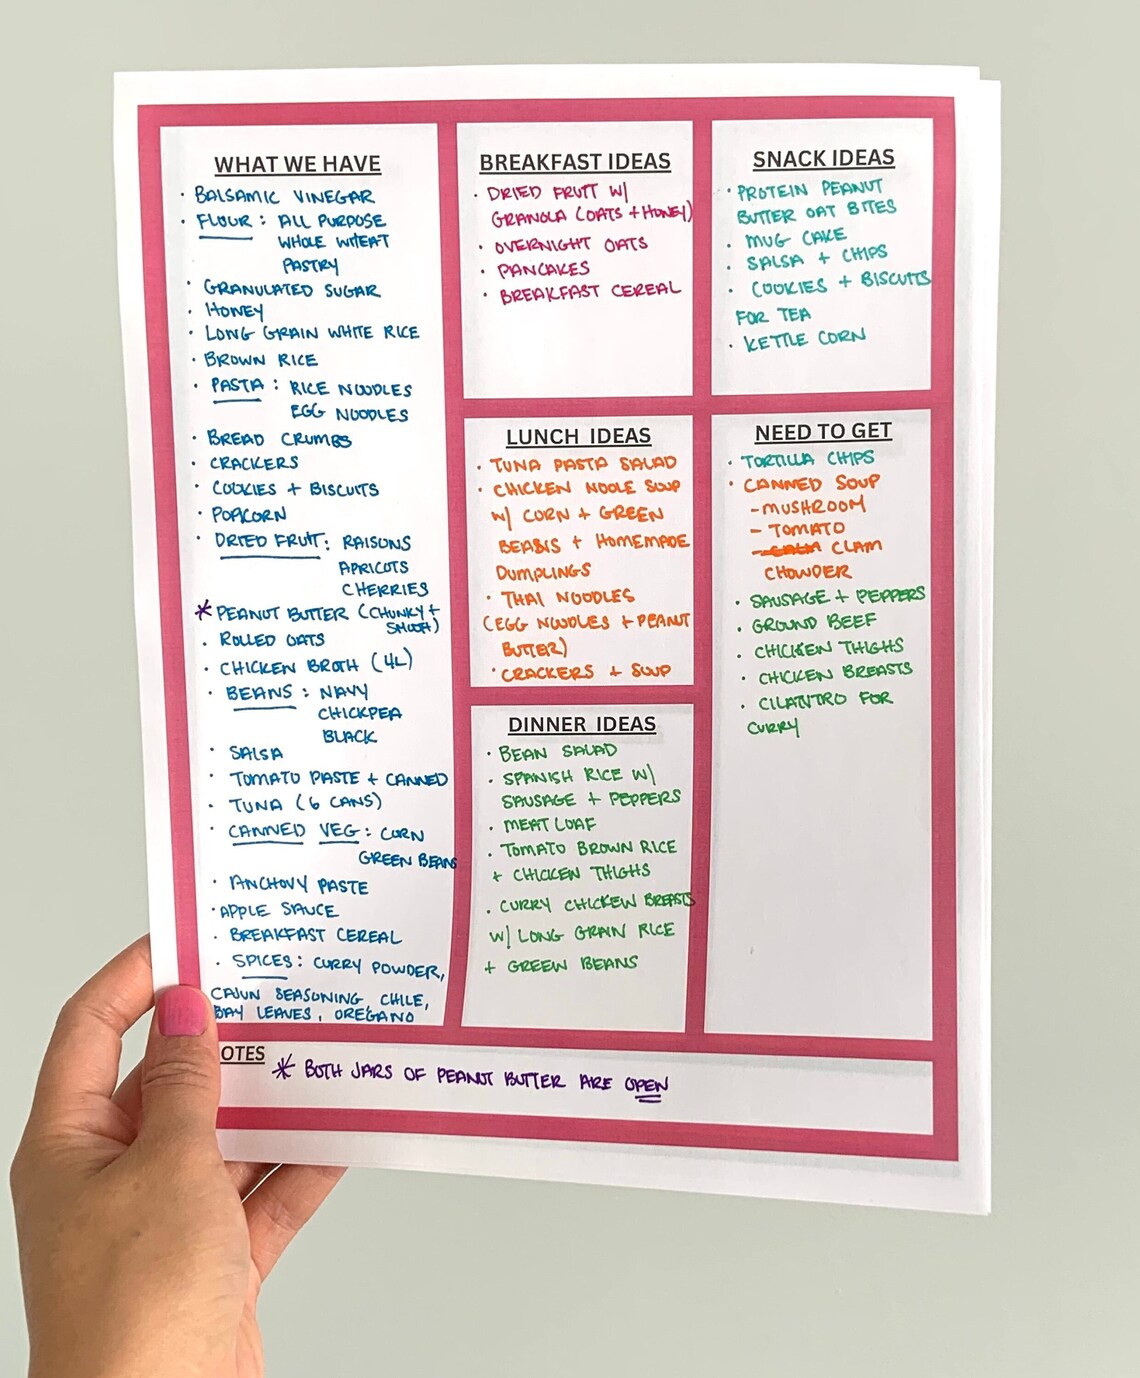 WHAT WE HAVE
· BALSAMIC VINEGAR
· FLOUR : ALL PURPOSE
WHOLE WHEAT
PASTRY
· GRANULATED SUGAR
· HONEY
· LONG GRAIN WHITE RICE
· BROWN RICE
· PASTA : RICE NOODLES
EGG NOODLES
· BREAD CRUMBS
· CRACKERS
· COOKIES + BISCUITS
· POPCORN
· DRIED FRUIT : RAISONS
APRICOTS
CHERRIES
* PEANUT BUTTER (CHUNKY +
SMOOTH)
· ROLLED OATS
· CHICKEN BROTH (4L)
· BEANS : NAVY
CHICKPEA
BLACK
· SALSA
· TOMATO PASTE + CANNED
· TUNA (6 CANS)
· CANNED VEG : CORN
GREEN BEANS
· ANCHOVY PASTE
· APPLE SAUCE
· BREAKFAST CEREAL
· SPICES : CURRY POWDER,
CAJUN SEASONING, CHILE,
BAY LEAVES, OREGANO
BREAKFAST IDEAS
· DRIED FRUIT W/
GRANOLA (OATS + HONEY)
· OVERNIGHT OATS
· PANCAKES
· BREAKFAST CEREAL
SNACK IDEAS
· PROTEIN PEANUT
BUTTER OAT BITES
· MUG CAKE
· SALSA + CHIPS
· COOKIES + BISCUITS
FOR TEA
· KETTLE CORN
LUNCH IDEAS
· TUNA PASTA SALAD
· CHICKEN NOOLE SOUP
W/ CORN + GREEN
BEABIS + HOMEMADE
DUMPLINGS
· THAI NOODLES
(EGG NOODLES + PEANUT
BUTTER)
· CRACKERS + SOUP
NEED TO GET
· TORTILLA CHIPS
· CANNED SOUP
- MUSHROOM
- TOMATO
- CLAM
CHOWDER
· SAUSAGE + PEPPERS
· GROUND BEEF
· CHICKEN THIGHS
· CHICKEN BREASTS
· CILANTRO FOR
CURRY
DINNER IDEAS
· BEAN SALAD
· SPANISH RICE W/
SAUSAGE + PEPPERS
· MEAT LOAF
· TOMATO BROWN RICE
+ CHICKEN THIGHS
· CURRY CHICKEN BREASTS
W/ LONG GRAIN RICE
+ GREEN BEANS
OTES
* BOTH JARS OF PEANUT BUTTER ARE OPEN